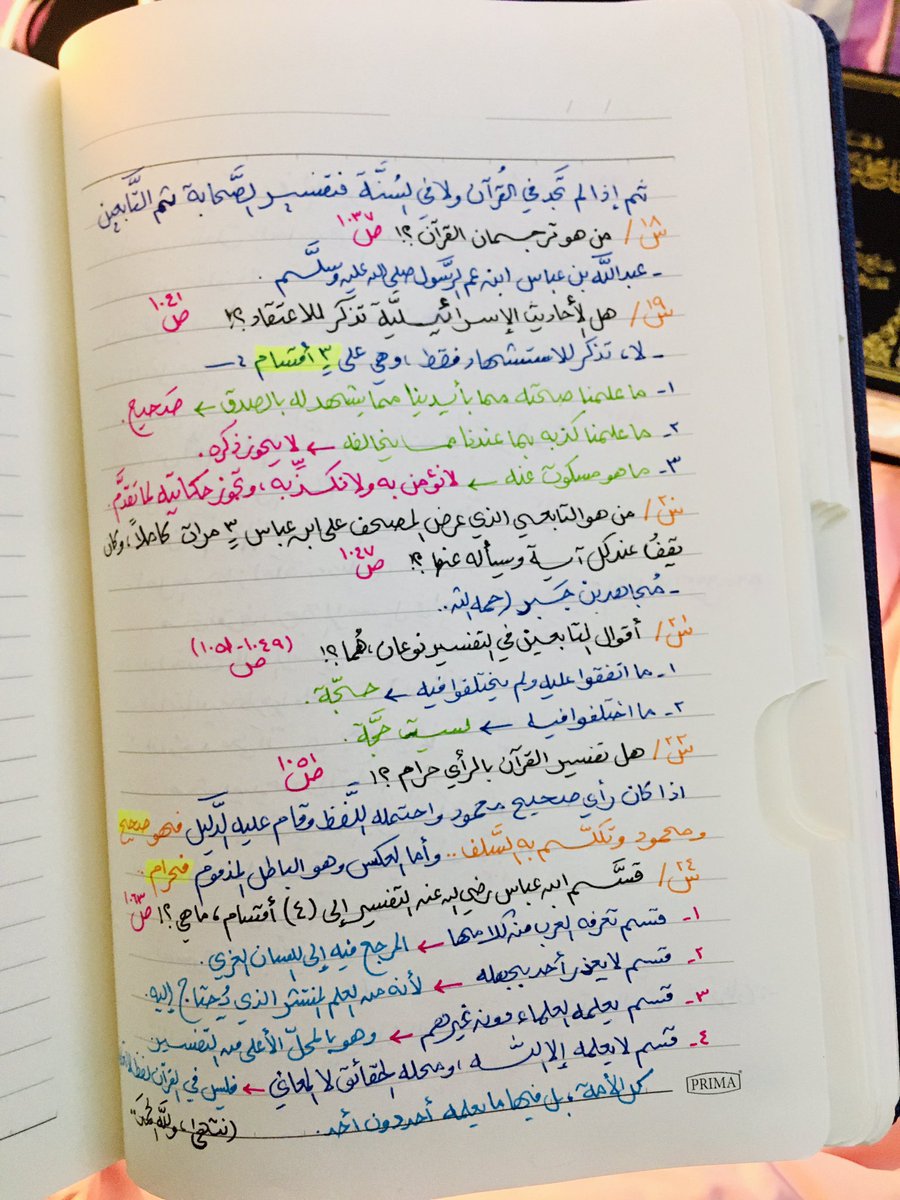 ثم إذا لم تَجد في القُرآن ولا في السُنَّة فتفسير الصَّحابة ثم التَّابعين
س١٨/ من هو ترجمان القرآن ؟! ص١٠٣٧
- عبدالله بن عباس ابن عم الرَّسول صلى الله عليه وسلَّم .
س١٩/ هل الأحاديث الإسرائيليَّة تذكر للاعتقاد ؟! ص١٠٤١
- لا، تذكر للاستشهاد فقط ، وهي على ٣ أقسام :-
١- ما علمنا صحته مما بأيدينا مما يشهد له بالصدق ← صَحيح.
٢- ما علمنا كذبه بما عندنا مما يخالفه ← لا يجوز ذكره.
٣- ما هو مسكوت عنه ← لا نؤمن به ولا نكذِّبه ، وتجوز حكايته لما تقدَّم.
س٢٠/ من هو التابعي الذي عرض المصحف على ابن عباس ٣ مرات كاملاً، وكان
يقفُ عند كل آية ويسأله عنها ؟! ص١٠٤٧
- مُجاهد بن جَبر رحمه الله..
س٢١/ أقوال التابعين في التفسير نوعان ، هُما ؟! ص (١٠٤٩-١٠٥١)
١- ما اتفقوا عليه ولم يختلفوا فيه ← حجَّة .
٢- ما اختلفوا فيه ← ليست حجَّة .
س٢٣/ هل تفسير القرآن بالرأي حرام ؟! ص١٠٥١
اذا كان رأي صحيح محمود واحتمله اللَّفظ وقام عليه الدَّليل فهو صحيح
ومحمود وتكلَّم به السَّلف .. وأما العكس وهو الباطل المذموم فحرام ..
س٢٤/ قسَّم ابن عباس رضي الله عنه التفسير إلى (٤) أقسام ، ما هي ؟! ص١٠٦٣
١- قسم تعرفه العرب من كلامها ← المرجع فيه إلى اللسان العربي .
٢- قسم لا يعذر أحد بجهله ← لأنه من العلم المنتشر الذي يُحتاج إليه
٣- قسم يعلمه العلماء دون غيرهم ← وهو بالمحلّ الأعلى من التفسير
٤- قسم لا يعلمه إلا الله ، ومحله الحقائق لا المعاني ← فليس في القرآن لفظ
كل الأمة ، بل فيها ما يعلمه أحد دون أحد.
(انتهى، ولله الحمد)
PRIMA